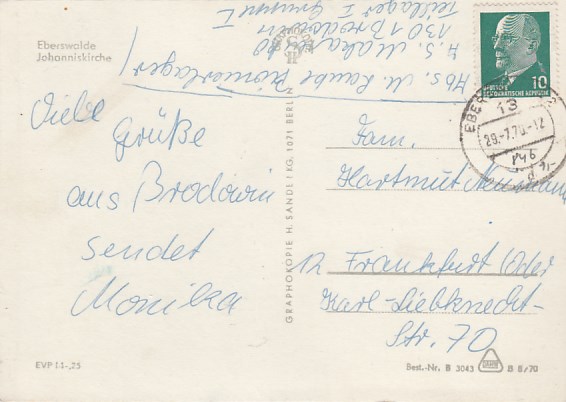 Eberswalde
Johanniskirche
Viele
Grüße
aus Brodowin
sendet
Monika
EVP M -,25
Abs. M. Pionierlager
A.S. Makarenko
1301 Brodowin
Teillager I Gruppe 1
GRAPHOKOPIE H. SANDER KG, 1071 BERLIN
DEUTSCHE
DEMOKRATISCHE REPUBLIK
10
EBER
13
29.-7.70.-12
Fam.
Hartmut Neumann
12 Frankfurt Oder
Karl-Liebknecht-
Str. 70
Best.-Nr. B 3043
B 8/70